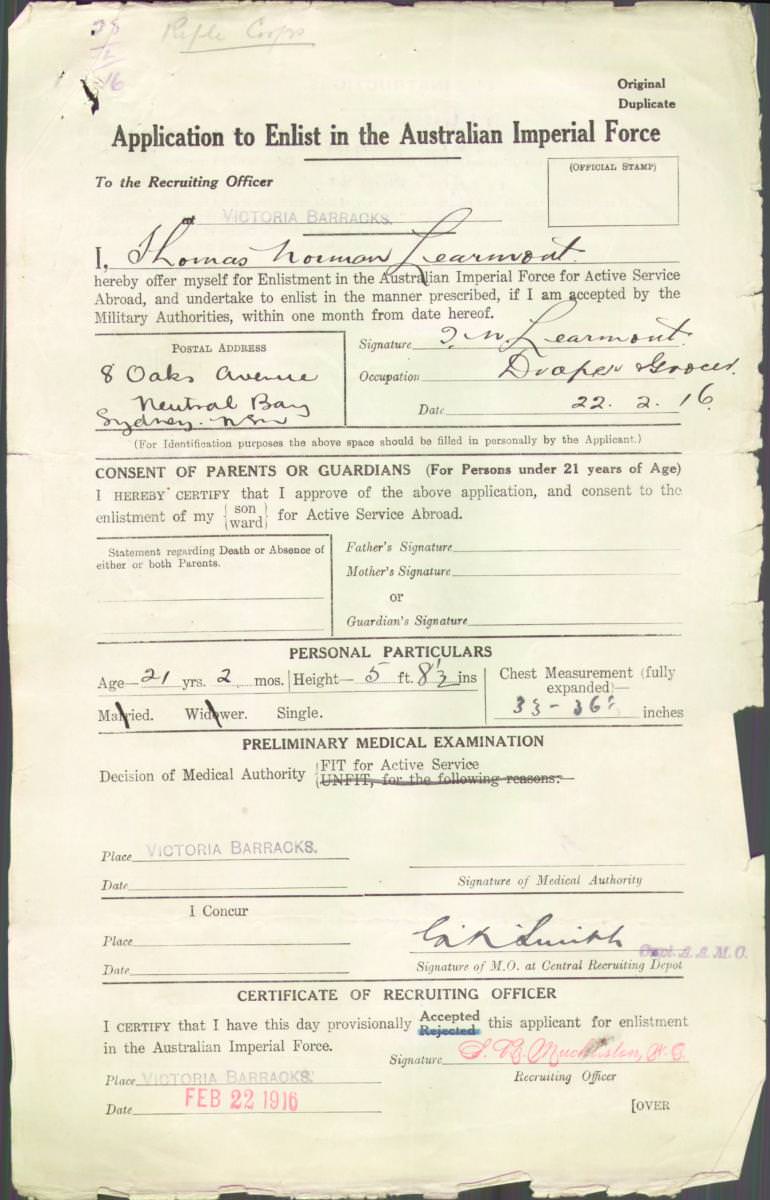 28
12
16
Rifle Corps
Original
Duplicate
Application to Enlist in the Australian Imperial Force
To the Recruiting Officer
(OFFICIAL STAMP)
at VICTORIA BARRACKS.
I, Thomas Norman Learmont
hereby offer myself for Enlistment in the Australian Imperial Force for Active Service
Abroad, and undertake to enlist in the manner prescribed, if I am accepted by the
Military Authorities, within one month from date hereof.
POSTAL ADDRESS
8 Oaks Avenue
Neutral Bay
Sydney. NSW
Signature T. N. Learmont.
Occupation Draper Grocer.
Date 22. 2. 16.
(For Identification purposes the above space should be filled in personally by the Applicant.)
CONSENT OF PARENTS OR GUARDIANS (For Persons under 21 years of Age)
I HEREBY CERTIFY that I approve of the above application, and consent to the
enlistment of my {son ward} for Active Service Abroad.
Statement regarding Death or Absence of
either or both Parents.
Father's Signature
Mother's Signature
or
Guardian's Signature
PERSONAL PARTICULARS
Age—21 yrs. 2 mos. Height—5 ft. 8½ ins
Chest Measurement (fully
expanded)—
33 - 36 inches
Married. Widower. Single.
PRELIMINARY MEDICAL EXAMINATION
Decision of Medical Authority {FIT for Active Service
UNFIT, for the following reasons:
Place VICTORIA BARRACKS.
Date
Signature of Medical Authority
I Concur
Place
Date
Smith Capt. A.A.M.C.
Signature of M.O. at Central Recruiting Depot
CERTIFICATE OF RECRUITING OFFICER
I CERTIFY that I have this day provisionally Accepted Rejected this applicant for enlistment
in the Australian Imperial Force.
Signature
Recruiting Officer
Place VICTORIA BARRACKS.
Date FEB 22 1916
[OVER